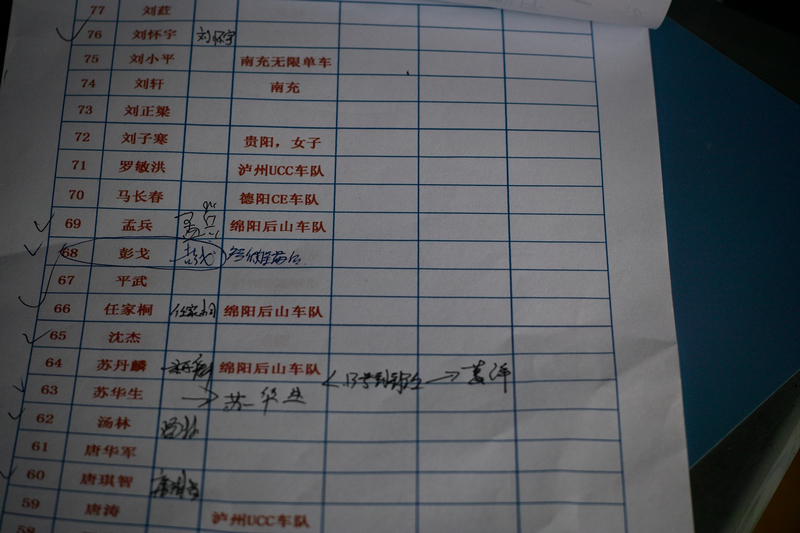 77 刘莊
76 刘怀宇 刘怀宇
75 刘小平 南充无限单车
74 刘轩 南充
73 刘正梁
72 刘子寒 贵阳，女子
71 罗敏洪 泸州UCC车队
70 马长春 德阳CE车队
69 孟兵 孟兵 绵阳后山车队
68 彭戈 彭戈
67 平武
66 任家桐 任家桐 绵阳后山车队
65 沈杰
64 苏丹麟 绵阳后山车队
63 苏华生 苏华生
62 汤林 汤林
61 唐华军
60 唐琪智 唐琪智
59 唐涛 泸州UCC车队
58